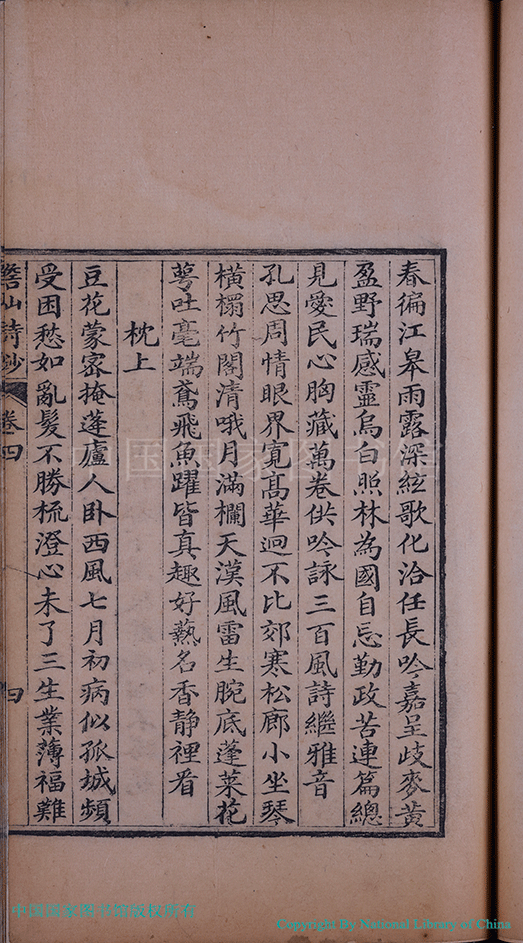 春徧江皋雨露深絃歌化洽任長吟嘉呈歧麥黄
盈野瑞感靈烏白照林為國自忘勤政苦連篇總
見愛民心胸藏萬卷供吟詠三百風詩繼雅音
孔思周情眼界寛髙華迥不比郊寒松廊小坐琴
横榻竹閣清哦月滿欄天漢風雷生腕底蓬萊花
萼吐毫端鳶飛魚躍皆真趣好爇名香静裡看
枕上
豆花蒙宻掩蓬廬人卧西風七月初病似孤城頻
受困愁如亂髮不勝梳澄心未了三生業薄福難
山詩鈔 卷四 四
中国国家图书馆
中国国家图书馆版权所有
Copyright By National Library of China